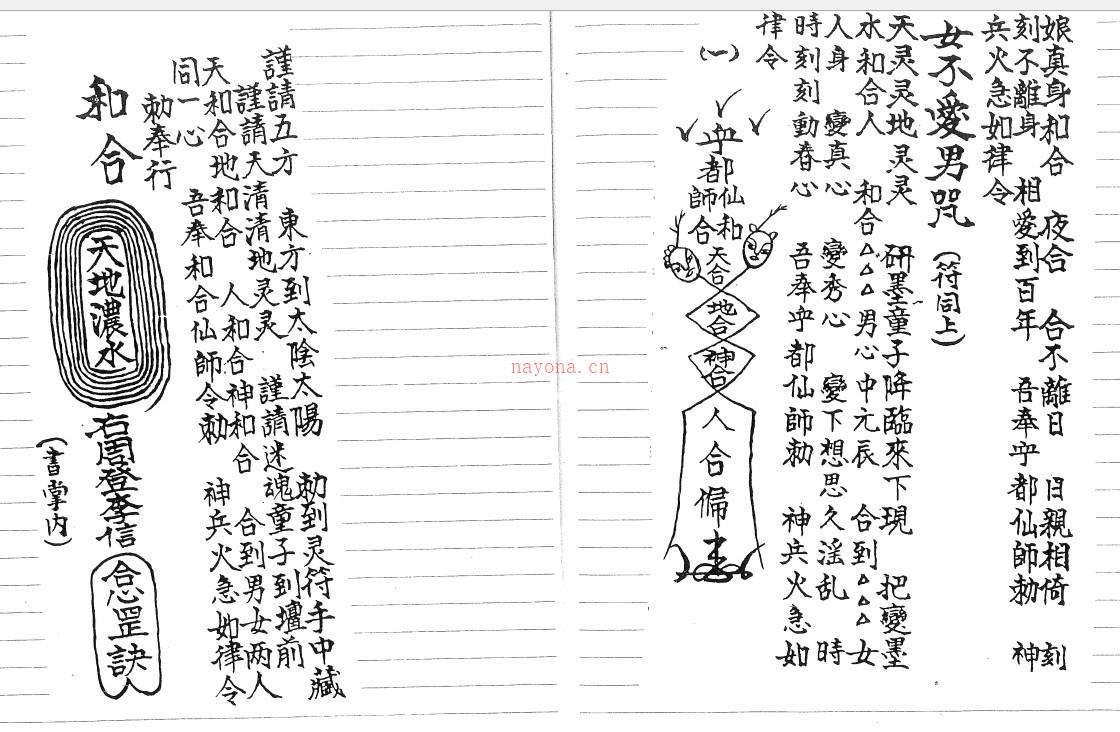 娘真身和合 夜合 合不離日 日親相倚 刻
刻不離身 相愛到百年 吾奉乎都仙師勅 神
兵火急如律令
女不愛男咒 (符同上)
天灵灵地灵灵 研墨童子降臨來下現 把變墨
水和合人 和合△△△男心中元辰 合到△△△女
人身 變真心 變秀心 變下想思久滛乱 時
時刻刻動春心 吾奉乎都仙師勅 神兵火急如
律令
(一)
乎都仙師和合
天合
地合
神合
人合
謹請五方 東方到太陰太陽 勅到灵符手中藏
謹請天清清地灵灵 謹請迷魂童子到壇前
天和合地和合 人和合神和合 合到男女两人
同一心 吾奉和合仙師令勅 神兵火急如律令
勅奉行
和合
天地濃水
李信
罡訣
(書掌内)
nayona.cn